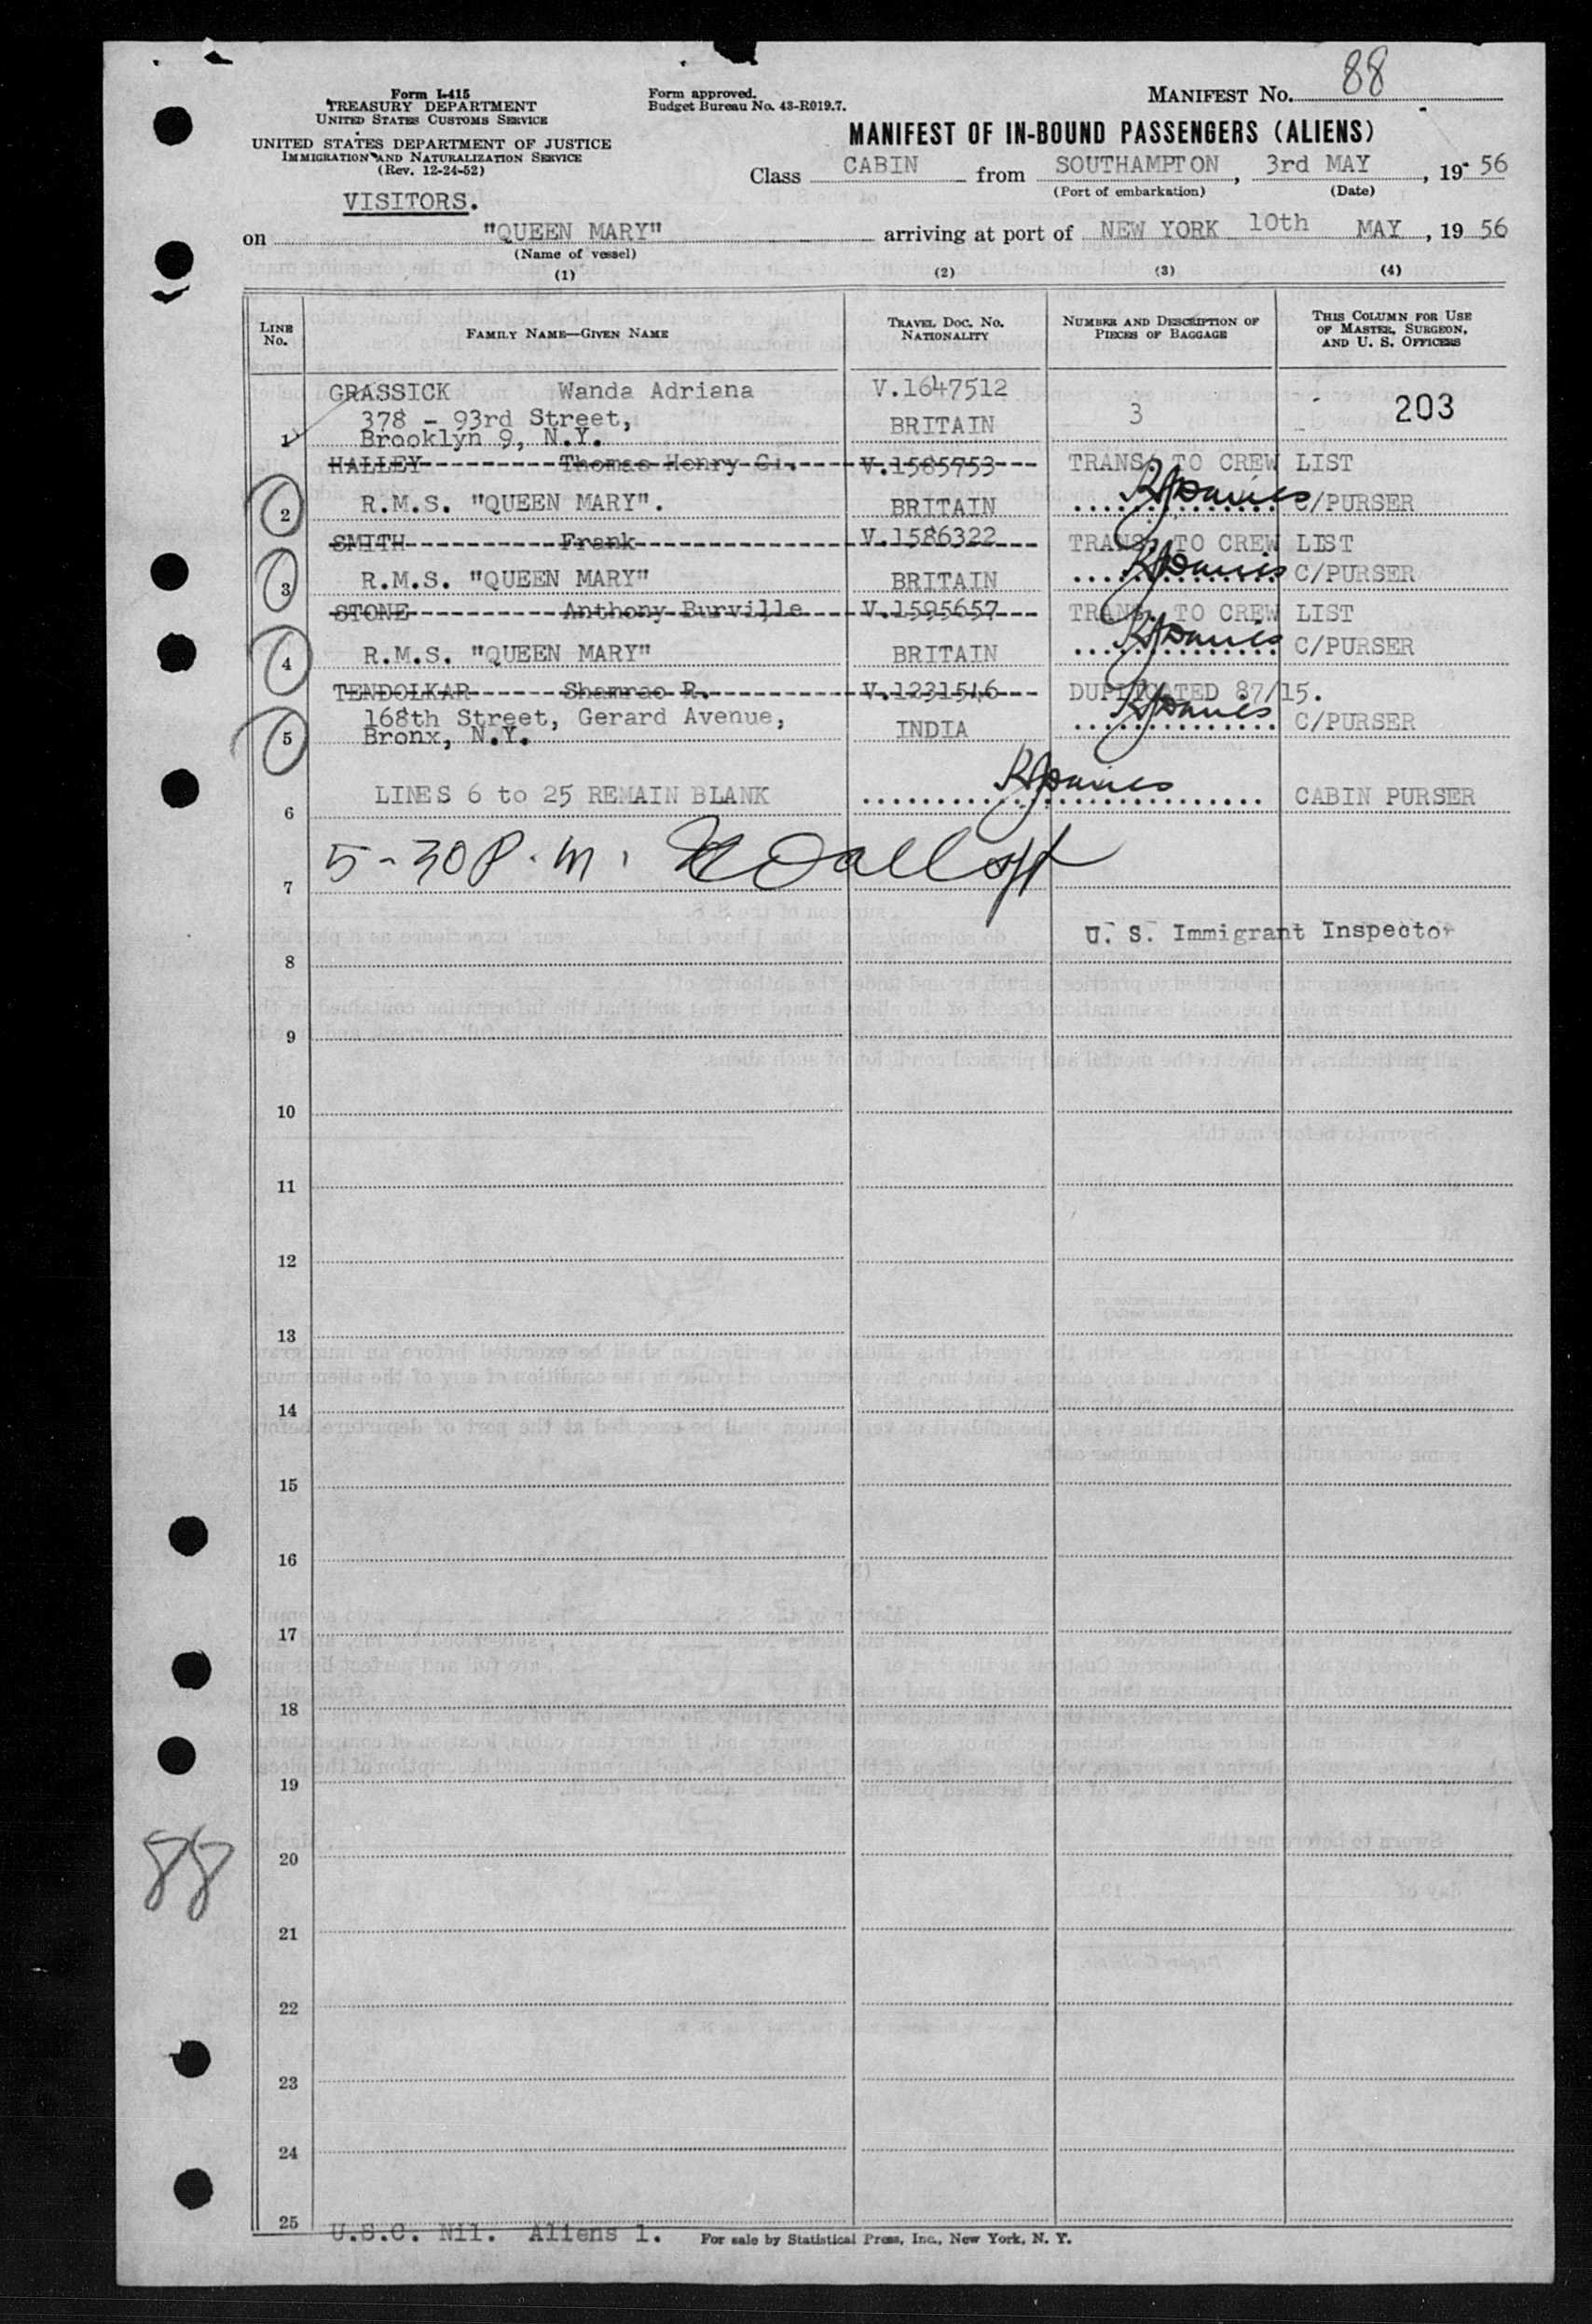 88
Form I-415
TREASURY DEPARTMENT
UNITED STATES CUSTOMS SERVICE
UNITED STATES DEPARTMENT OF JUSTICE
IMMIGRATION AND NATURALIZATION SERVICE
(Rev. 12-24-52)
VISITORS.
Form approved.
Budget Bureau No. 43-R019.7.
MANIFEST No.
MANIFEST OF IN-BOUND PASSENGERS (ALIENS)
Class CABIN from SOUTHAMPTON, 3rd MAY, 1956
(Port of embarkation) (Date)
on "QUEEN MARY" arriving at port of NEW YORK 10th MAY, 1956
(Name of vessel)
(1) (2) (3) (4)
LINE No. FAMILY NAME—GIVEN NAME TRAVEL DOC. No. NATIONALITY NUMBER AND DESCRIPTION OF PIECES OF BAGGAGE THIS COLUMN FOR USE OF MASTER, SURGEON, AND U. S. OFFICERS
GRASSICK Wanda Adriana V.1647512
378 - 93rd Street, BRITAIN 3 203
1 Brooklyn 9, N.Y.
HALLEY Thomas Henry G. V.1585753 TRANS. TO CREW LIST
2 R.M.S. "QUEEN MARY". BRITAIN C/PURSER
SMITH Frank V.1586322 TRANS. TO CREW LIST
3 R.M.S. "QUEEN MARY" BRITAIN C/PURSER
STONE Anthony Burville V.1595657 TRANS. TO CREW LIST
4 R.M.S. "QUEEN MARY" BRITAIN C/PURSER
TENDOLKAR Shamrao R. V.1231546 DUPLICATED 87/15.
168th Street, Gerard Avenue,
5 Bronx, N.Y. INDIA C/PURSER
6 LINES 6 to 25 REMAIN BLANK CABIN PURSER
7 5-30 P.m.
U. S. Immigrant Inspector
8
9
10
11
12
13
14
15
16
17
18
19
88
20
21
22
23
24
25
U.S.C. Nil. Aliens 1. For sale by Statistical Press, Inc., New York, N. Y.